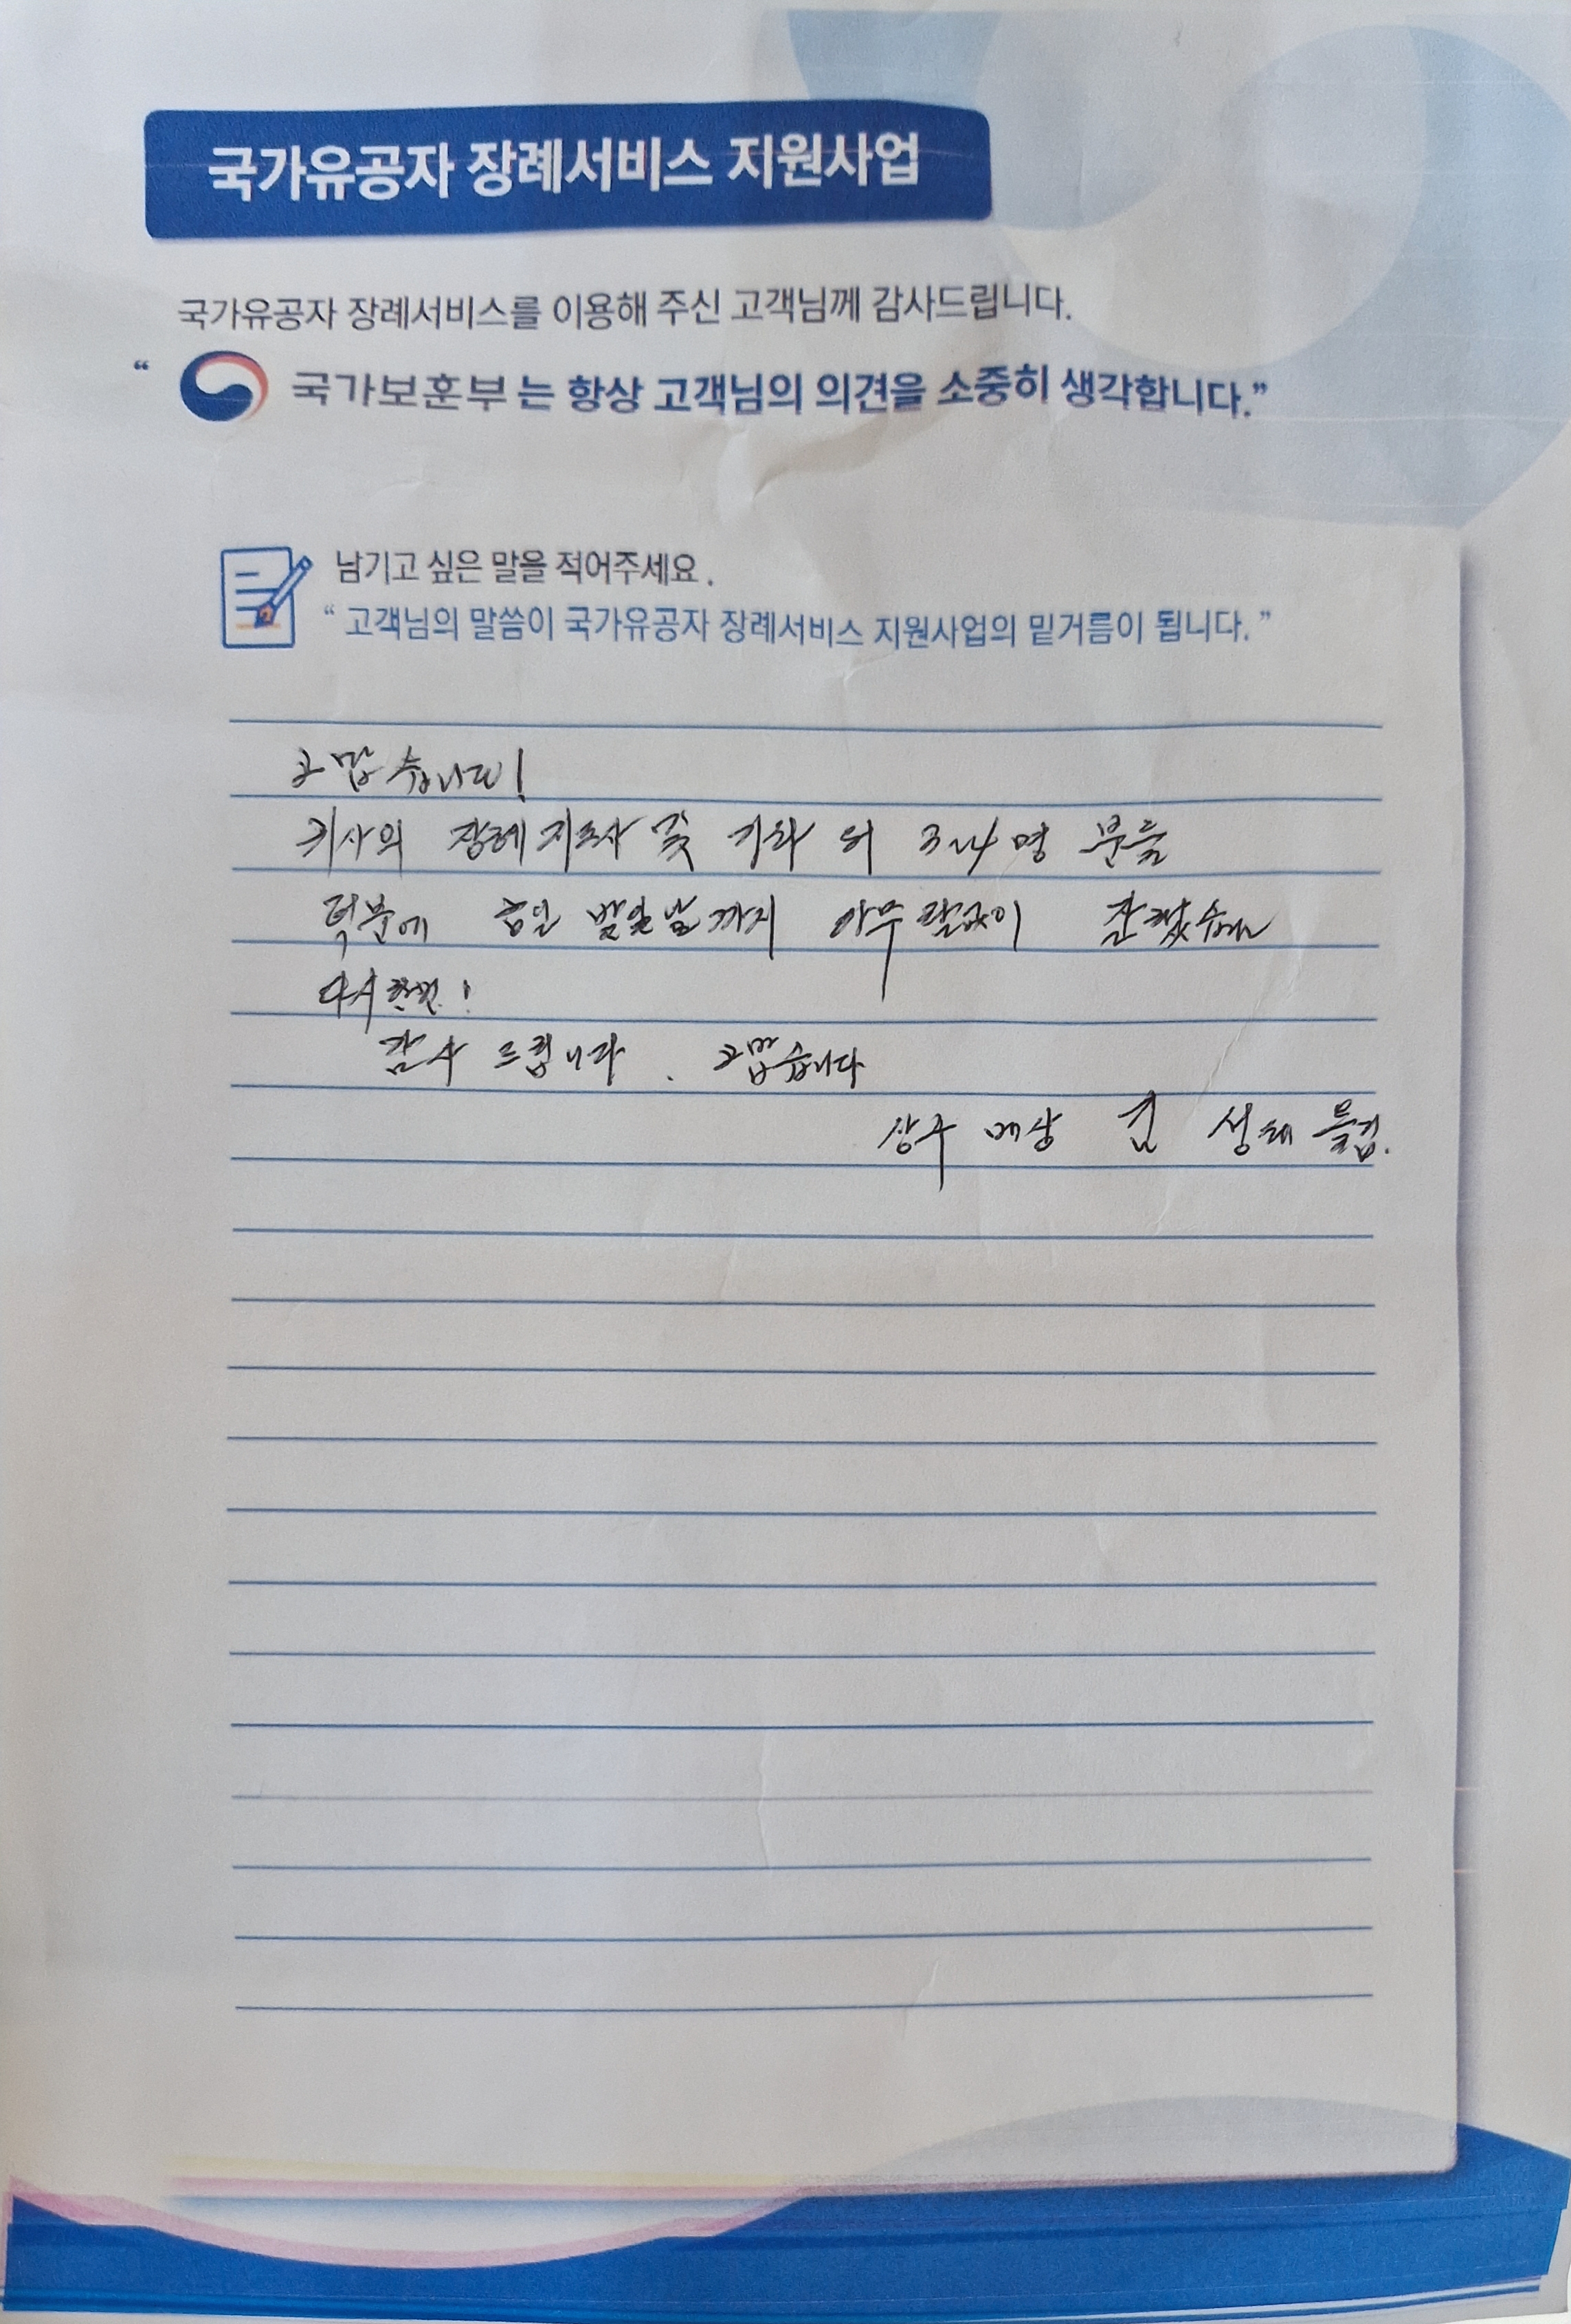 국가유공자 장례서비스 지원사업
국가유공자 장례서비스를 이용해 주신 고객님께 감사드립니다.
“ 국가보훈부는 항상 고객님의 의견을 소중히 생각합니다.”
남기고 싶은 말을 적어주세요.
“ 고객님의 말씀이 국가유공자 장례서비스 지원사업의 밑거름이 됩니다. ”
고맙습니다!
귀사의 장례지도사 및 외 3~4명 분들
덕분에 발인날까지 아무탈없이 잘
다시한번!
감사 드립니다. 고맙습니다
상주 김 성태 올림.